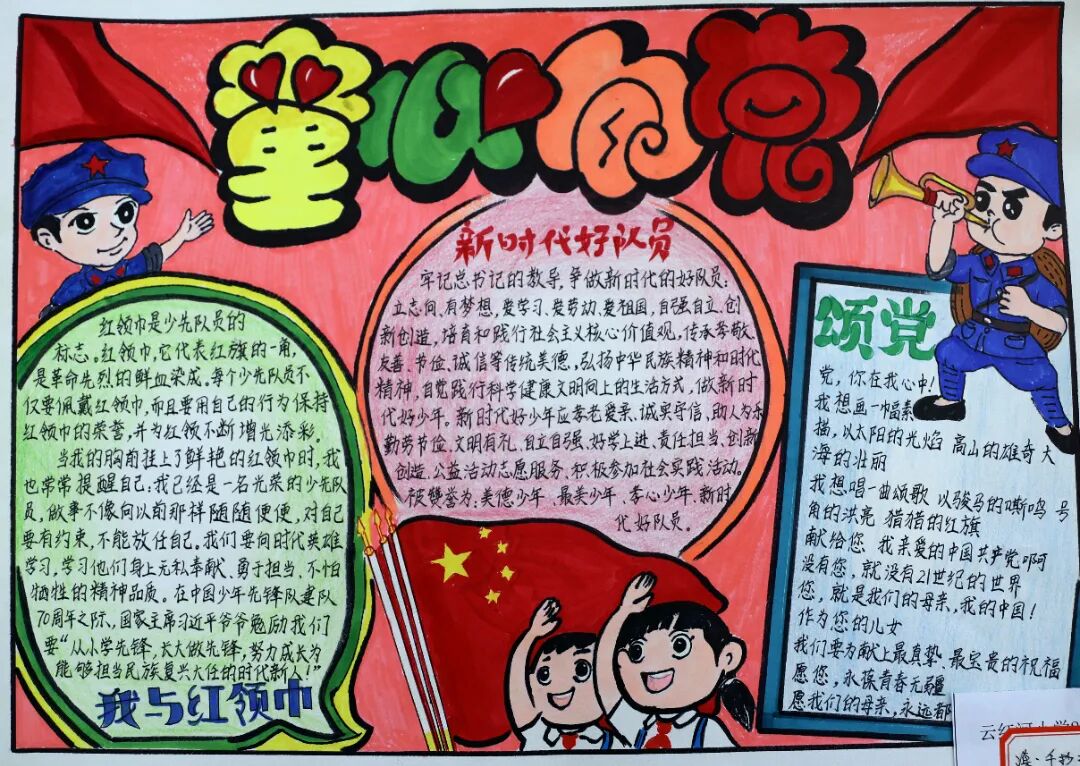 童心向党
红领巾是少先队员的
标志。红领巾,它代表红旗的一角,
是革命先烈的鲜血染成。每个少先队员不
仅要佩戴红领巾,而且要用自己的行为保持
红领巾的荣誉,并为红领不断增光添彩.
当我的胸前挂上了鲜艳的红领巾时,我
也常常提醒自己:我已经是一名光荣的少先队
员,做事不像向以前那祥随随便便,对自己
要有约束,不能放任自己。我们要向时代英雄
学习,学习他们身上无私奉献、勇于担当、不怕
牺牲的精神品质。在中国少年先锋队建队
70周年之际,国家主席习近平爷爷勉励我们
要“从小学先锋,长大做先锋,努力成长为
能够担当民族复兴大任的时代新人!”
我与红领巾
新时代好队员
牢记总书记的教导,争做新时代的好队员:
立志向、有梦想,爱学习、爱劳动、爱祖国,自强自立、创
新创造,培育和践行社会主义核心价值观,传承孝敬、
友善、节俭、诚信等传统美德,弘扬中华民族精神和时代
精神,自觉践行科学健康文明向上的生活方式,做新时
代好少年。新时代好少年应孝老爱亲、诚实守信、助人为乐
勤劳节俭、文明有礼、自立自强、好学上进、责任担当、创新
创造、公益活动志愿服务、积极参加社会实践活动。
被赞誉为:美德少年、最美少年、孝心少年、新时
代好队员。
颂党
党,你在我心中!
我想画一幅素
描,以太阳的光焰 高山的雄奇 大
海的壮丽
我想唱一曲颂歌 以骏马的嘶鸣 号
角的洪亮 猎猎的红旗
献给您 我亲爱的中国共产党啊
没有您,就没有21世纪的世界
您,就是我们的母亲,我的中国!
作为您的儿女
我们要为献上最真挚、最宝贵的祝福
愿您,永葆青春无疆
愿我们的母亲,永远都